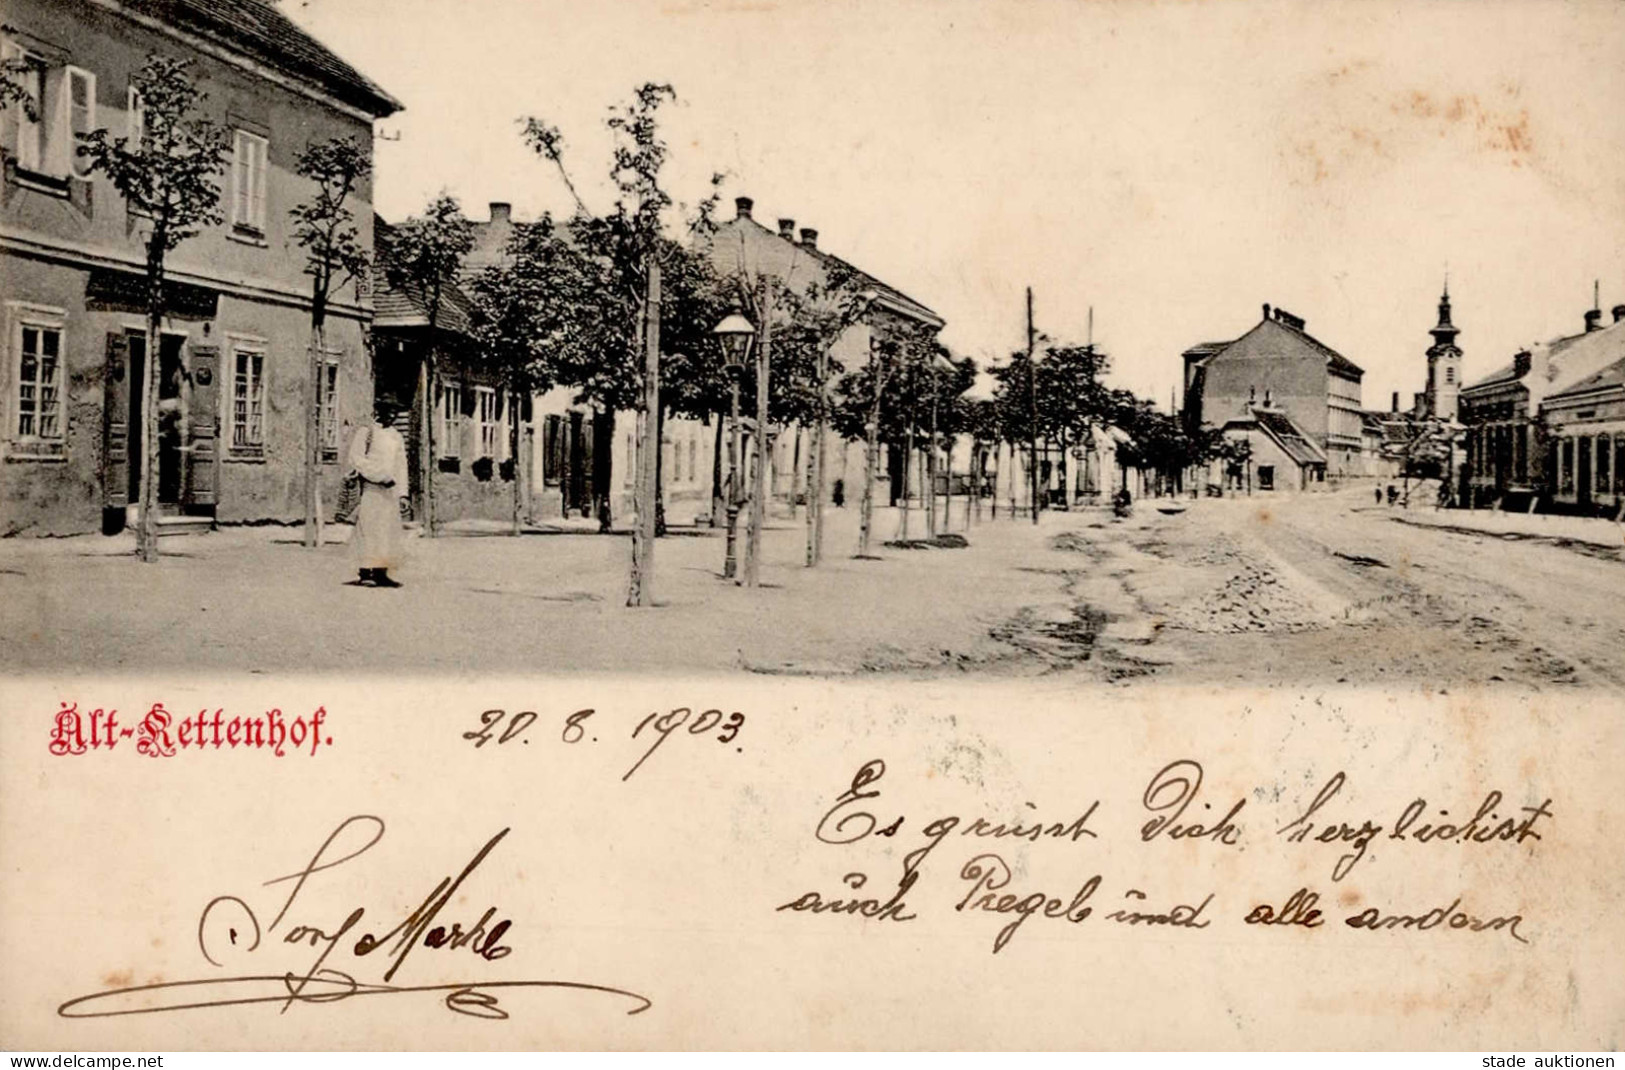 Alt-Kettenhof.
20. 8. 1903.
Es grüsst Dich herzlichst
auch Pregel und alle andern
Markl
www.delcampe.net
stade auktionen